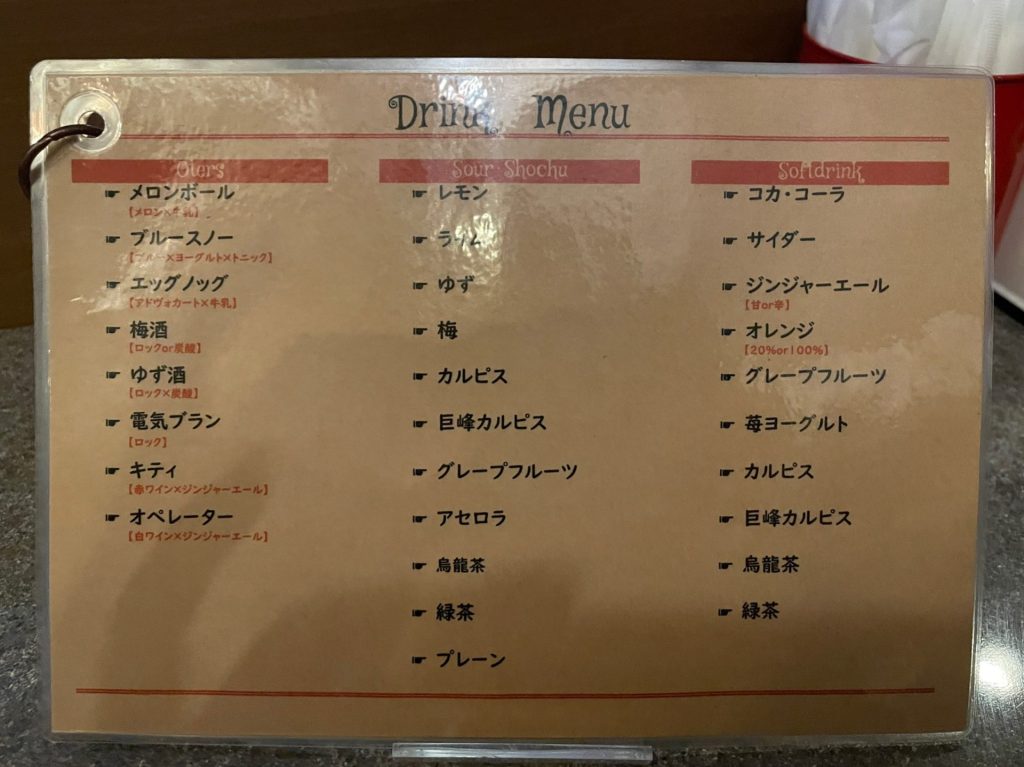 Drink Menu
Oters
☛ メロンボール
【メロン×牛乳】
☛ ブルースノー
【ブルー×ヨーグルト×トニック】
☛ エッグノッグ
【アドヴォカート×牛乳】
☛ 梅酒
【ロックor炭酸】
☛ ゆず酒
【ロック×炭酸】
☛ 電気ブラン
【ロック】
☛ キティ
【赤ワイン×ジンジャーエール】
☛ オペレーター
【白ワイン×ジンジャーエール】
Sour Shochu
☛ レモン
☛ ライム
☛ ゆず
☛ 梅
☛ カルピス
☛ 巨峰カルピス
☛ グレープフルーツ
☛ アセロラ
☛烏龍茶
☛ 緑茶
☛ プレーン
Softdrink
☛ コカ・コーラ
☛ サイダー
☛ ジンジャーエール
【甘or辛】
☛ オレンジ
【20%or100%】
☛ グレープフルーツ
☛ 苺ヨーグルト
☛ カルピス
☛ 巨峰カルピス
☛ 烏龍茶
☛ 緑茶